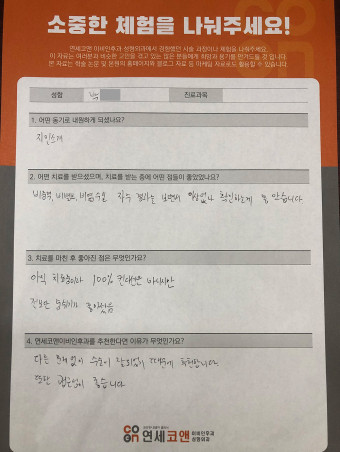 소중한 체험을 나눠주세요!
연세코앤 이비인후과 성형외과에서 경험했던 시술 과정이나 체험을 나눠주세요.
이 자료는 여러분과 비슷한 고민을 갖고 있는 많은 분들에게 희망과 용기를 안겨드릴 것 입니다.
본 자료는 학술 논문 및 본원의 홈페이지와 블로그 자료 등 마케팅 자료로도 활용될 수 있습니다.
성함 박 진료과목
1. 어떤 동기로 내원하게 되셨나요?
지인소개
2. 어떤 치료를 받으셨으며, 치료를 받는 중에 어떤 점들이 좋았었나요?
비중격, 비밸브, 비염수술 자주 경과를 보면서 이상없나 확인하는게
3. 치료를 마친 후 좋아진 점은 무엇인가요?
아직 치료중이라 100% 컨디션은 아니지만
전보단 분위기가 좋아졌음
4. 연세코앤이비인후과를 추천한다면 이유가 무엇인가요?
다른 문제 없이 수술이 잘되었기 때문에 추천합니다
또한 접근성이 좋습니다
CO
ON 연세코앤 이비인후과
성형외과